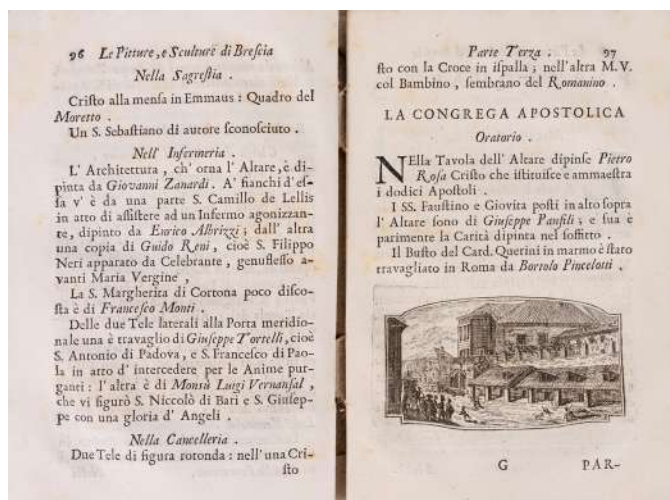 96 Le Pitture, e Sculture di Brescia
Nella Sagrestia .
Cristo alla mensa in Emmaus : Quadro del
Moretto .
Un S. Sebastiano di autore sconosciuto .
Nell' Infermeria .
L' Architettura , ch' orna l' Altare, è di-
pinta da Giovanni Zanardi . A' fianchi d'es-
sa v' è da una parte S. Camillo de Lellis
in atto di assistere ad un Infermo agonizzan-
te, dipinto da Enrico Albrizzi ; dall' altra
una copia di Guido Reni , cioè S. Filippo
Neri apparato da Celebrante , genuflesso a-
vanti Maria Vergine ,
La S. Margherita di Cortona poco disco-
sta è di Francesco Monti .
Delle due Tele laterali alla Porta meridio-
nale una è travaglio di Giuseppe Tortelli, cioè
S. Antonio di Padova , e S. Francesco di Pao-
la in atto d' intercedere per le Anime pur-
ganti : l' altra è di Monsù Luigi Vernansal ,
che vi figurò S. Niccolò di Bari e S. Giusep-
pe con una gloria d' Angeli .
Nella Cancelleria .
Due Tele di figura rotonda : nell' una Cri-
sto
Parte Terza . 97
sto con la Croce in ispalla ; nell' altra M. V.
col Bambino , sembrano del Romanino .
LA CONGREGA APOSTOLICA
Oratorio .
NElla Tavola dell' Altare dipinse Pietro
Rosa Cristo che istituisce e ammaestra
i dodici Apostoli .
I SS. Faustino e Giovita posti in alto sopra
l' Altare sono di Giuseppe Panfili ; e sua è
parimente la Carità dipinta nel soffitto .
Il Busto del Card. Querini in marmo è stato
travagliato in Roma da Bortolo Pincelotti .
G PAR-